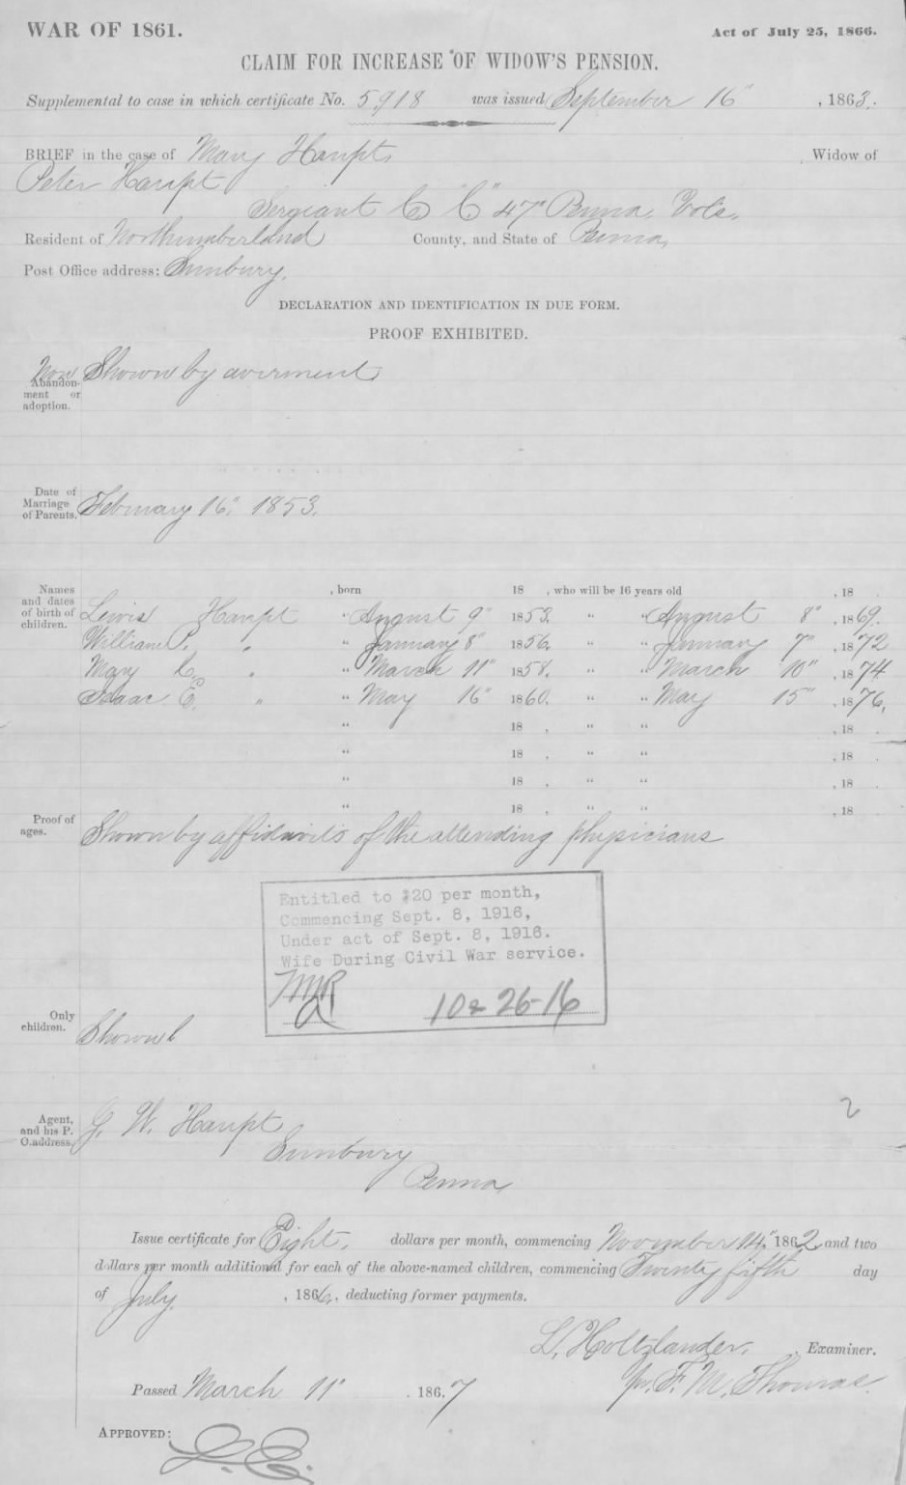 WAR OF 1861.
Act of July 25, 1866.
CLAIM FOR INCREASE OF WIDOW'S PENSION.
Supplemental to case in which certificate No. 5918 was issued September 16" , 1863.
BRIEF in the case of Mary Haupt, Widow of
Peter Haupt
Sergeant Co "C" 47" Penna. Vols.
Resident of Northumberland County, and State of Penna,
Post Office address: Sunbury.
DECLARATION AND IDENTIFICATION IN DUE FORM.
PROOF EXHIBITED.
Non Abandonment or adoption. Shown by averment
Date of Marriage of Parents. February 16" 1853.
Names and dates of birth of children. , born 18 , who will be 16 years old , 18
Lewis Haupt " August 9" 1853. " " August 8" , 1869.
William P. " " January 8" 1856. " " January 7" , 1872
Mary C. " " March 11" 1858. " " March 10" , 1874
Isaac E. " " May 16" 1860. " " May 15" , 1876.
" 18 , " " , 18 .
" 18 , " " , 18 .
" 18 , " " , 18 .
" 18 , " " , 18 .
Proof of ages. Shown by affidavits of the attending physicians
Entitled to $20 per month,
Commencing Sept. 8, 1916,
Under act of Sept. 8, 1916.
Wife During Civil War service.
10-26-16
Only children. Shown
2
Agent, and his P. O. address. G. W. Haupt
Sunbury
Penna,
Issue certificate for Eight, dollars per month, commencing November 14," 1862, and two
dollars per month additional for each of the above-named children, commencing Twenty fifth day
of July , 1866, deducting former payments.
L. Holtzlander. , Examiner.
Pr. F. M. Thomas
Passed March 11" , 1867
APPROVED: